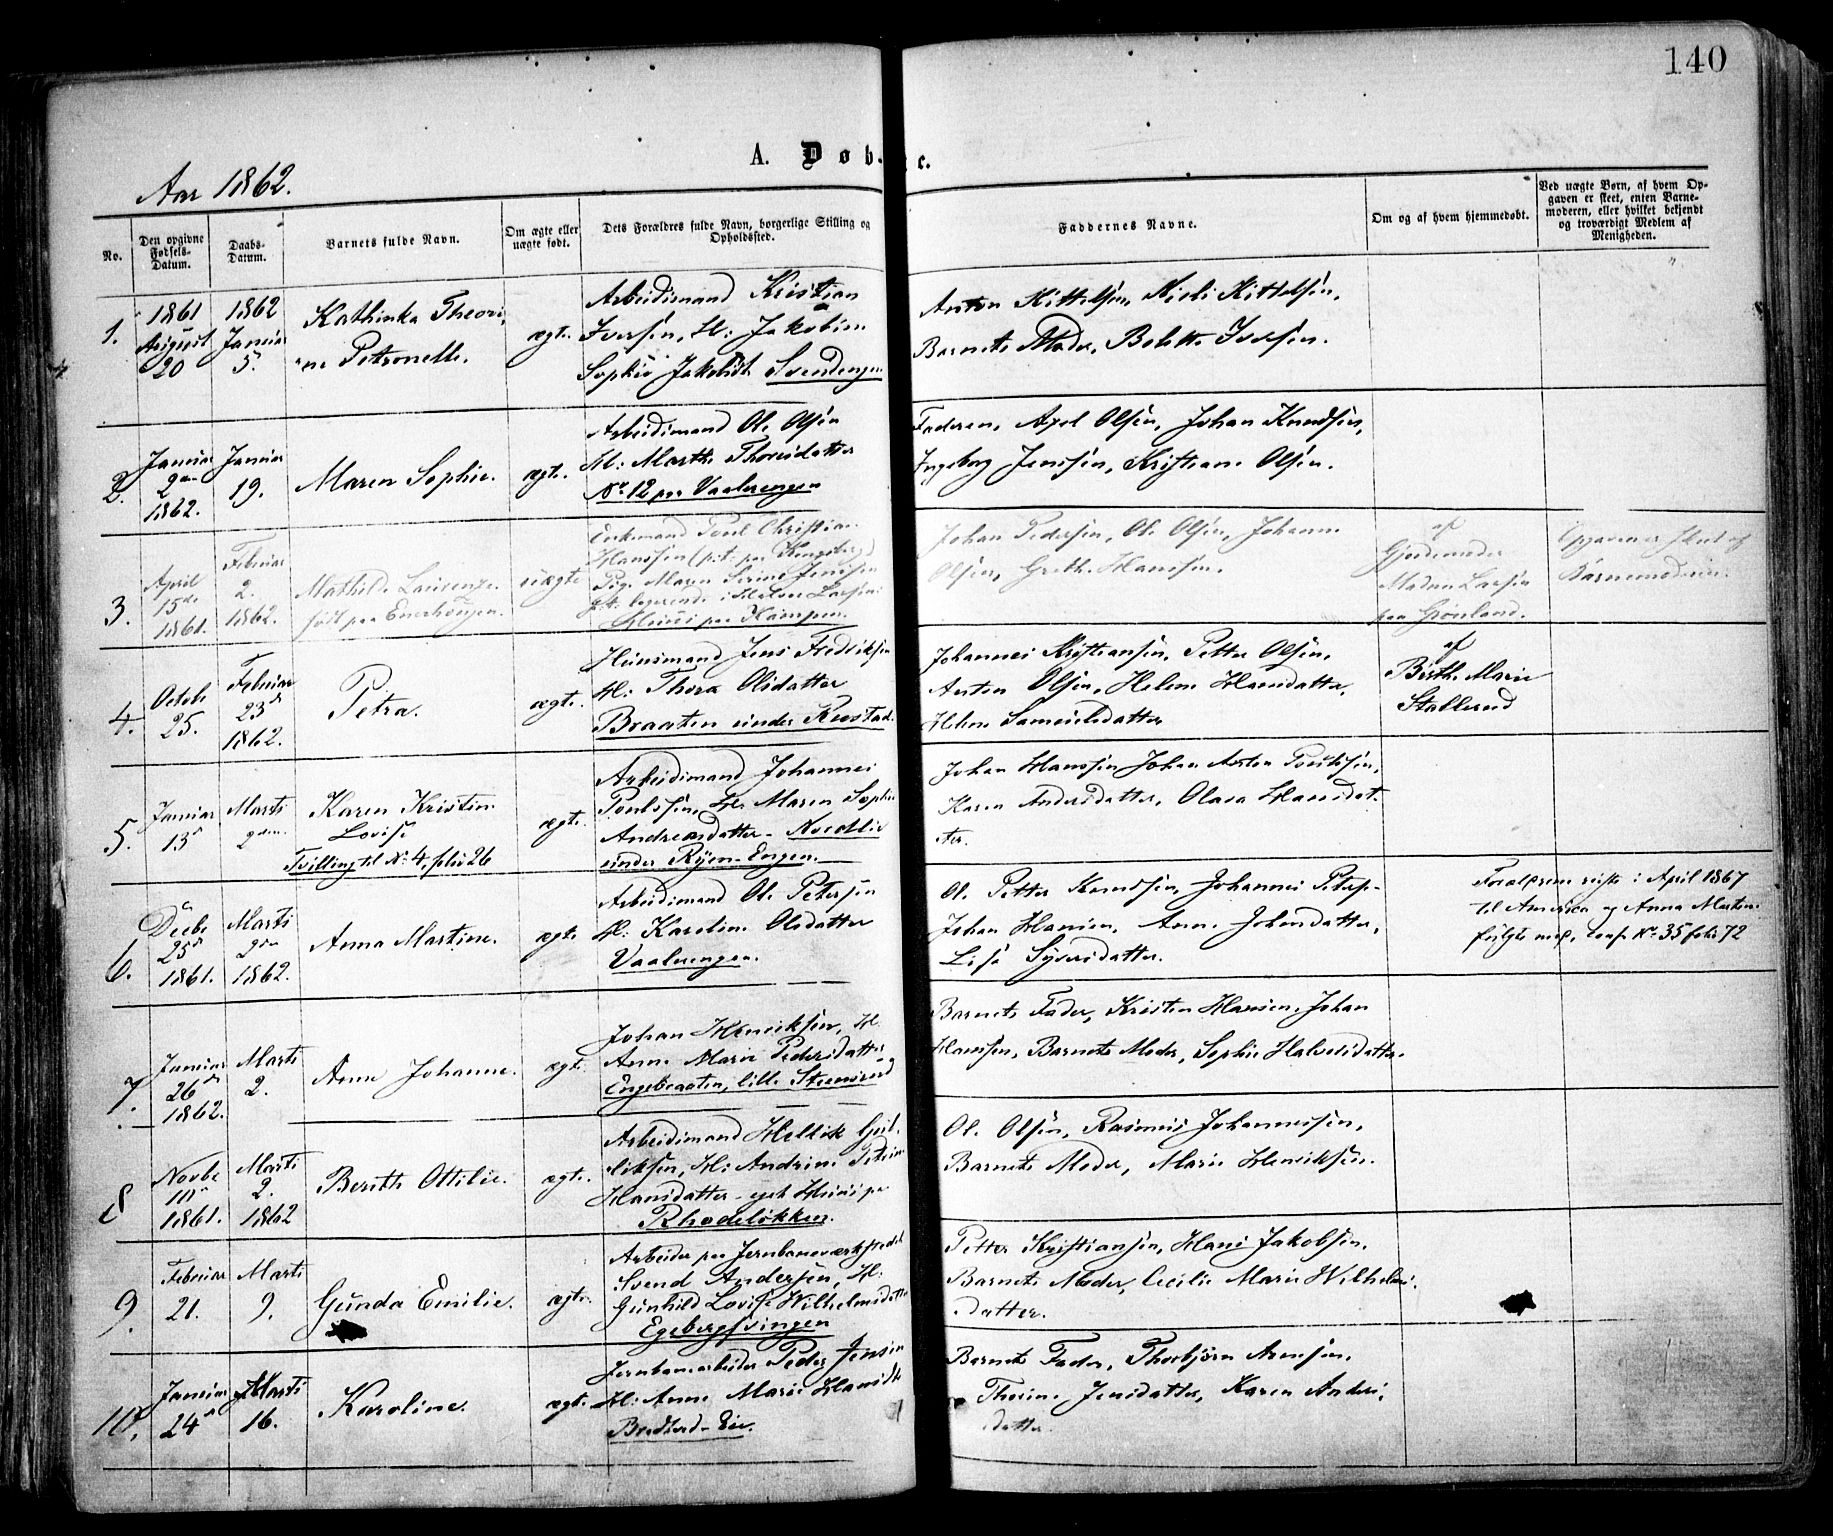 140
A. Døb- e.
Aar 1862.
No.
Den opgivne Fødsels-Datum.
Daabs-Datum.
Barnets fulde Navn.
Om ægte eller uægte født.
Dets Forældres fulde Navn, borgerlige Stilling og Opholdssted.
Faddernes Navne.
Om og af hvem hjemmedøbt.
Ved uægte Børn, af hvem Opgaven er skeet, enten Barnemoderen, eller hvilket bekjendt og troværdigt Medlem af Menigheden.
1.
1861
August
20
1862
Januar
5.
Kathinka Theori-
ne Petronelle.
ægte.
Arbeidsmand Kristian
Iversen, H: Jakobine
Sophie Jakobsdt. Svendengen
Anton Kittelsen, Kittelsen,
Barnets Moder, Belette Iversen.
2.
Januar
2den
1862.
Januar
19.
Maren Sophie.
ægte.
Arbeidsmand Ole Olsen
H: Marthe Thoresdatter
No 12 paa Vaalerengen
Faderen, Axel Olsen, Johan Knudsen,
Ingeborg Jenssen, Kristiane Olsen.
3.
April
15de
1861.
Februar
2.
1862.
Mathilde Laurenze
født paa Enerhougen.
uægte
Enkemand Poul Christian
Hanssen (p.t. paa Kongsberg)
Pige Maren Serine Jenssen
p.t. logerende i Larsens
Huus paa Kampen.
Johan Pedersen, Ole Olsen, Johanne
Olsen, Grethe Hanssen.
af
Gjordemoder
Madam Larsen
paa Grønland.
Opgaven er skeet af
Barnemoderen.
4.
Octobr
25.
Februar
23de
1862.
Petra.
ægte.
Huusmand Jens Fredriksen
H: Thora Olsdatter
Braaten under Rustad.
Johannes Kristiansen, Petter Olsen,
Anton Olsen, Helene Hansdatter,
Helene Samuelsdatter
af
Birthe Marie
Stallerud
5.
Januar
13de
Marts
2den.
Karen Kristine
Lovise
Tvilling til No 4 folio 26
ægte.
Arbeidsmand Johannes
Poulssen, H: Maren Sophie
Andreasdatter - Nordlie
under Ryen-Engen.
Johan Hanssen Johan Anton Poulssen,
Karen Andersdatter, Olava Hansdat-
ter.
6.
Decbr
25de
1861.
Marts
2den
1862.
Anna Martine.
ægte.
Arbeidsmand Ole Petersen
H: Karoline Olsdatter
Vaalerengen.
Ole Petter Knudsen, Johannes Peters-
Johan Hansen, Anne Johnsdatter,
Lise Syversdatter.
Forældrene reiste i April 1867
til America og Anna Martine
fulgte med, No 35 folio 72
7.
Januar
26de
1862.
Marts
2.
Anne Johanne.
ægte.
Johan Henriksen, H:
Anne Marie Pedersdatter
Engebraaten, lille Steensrud
Barnets Fader, Kristen Hansen, Johan
Hanssen, Barnets Moder, Sophie Halvorsdatter.
8
Novbr
10de
1861.
Marts
2.
1862
Berith Ottilie.
ægte.
Arbeidsmand Hellik Gul-
liksen, H: Andrine Petrine
Hansdatter - eget Huus paa
Rhodeløkken.
Ole Olsen, Rasmus Johannessen,
Barnets Moder, Marie Henriksen.
9.
Februar
21.
Marts
9.
Gunda Emilie.
ægte.
Arbeider paa Jernbaneværkstedet
Svend Andersen, H:
Gunhild Lovise Wilhelmsdatter
Egebergsvingen
Petter Kristiansen, Hans Jakobsen,
Barnets Moder, Cecilie Marie Wilhelms-
datter.
10.
Januar
24de
Marts
16.
Karoline.
ægte.
Jernbanearbeider Peder Jensen
H: Anne Marie Hansdt.
Eie.
Barnets Fader, Thorbjørn Arnesen,
Thorine Jensdatter, Karen Anders-
datter.